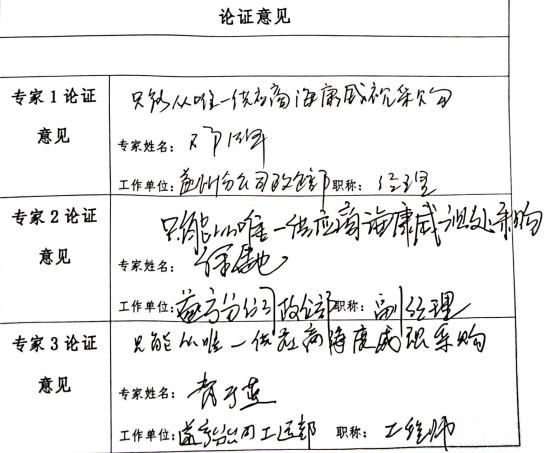 论证意见
专家1论证意见
只能从唯一供应商海康威视采购
专家姓名：
工作单位：分公司政企部 职称：经理
专家2论证意见
只能从唯一供应商海康威视处采购
专家姓名：徐
工作单位：分公司政企部 职称：副经理
专家3论证意见
只能从唯一供应商海康威视采购
专家姓名：
工作单位：分公司工 部 职称：工程师